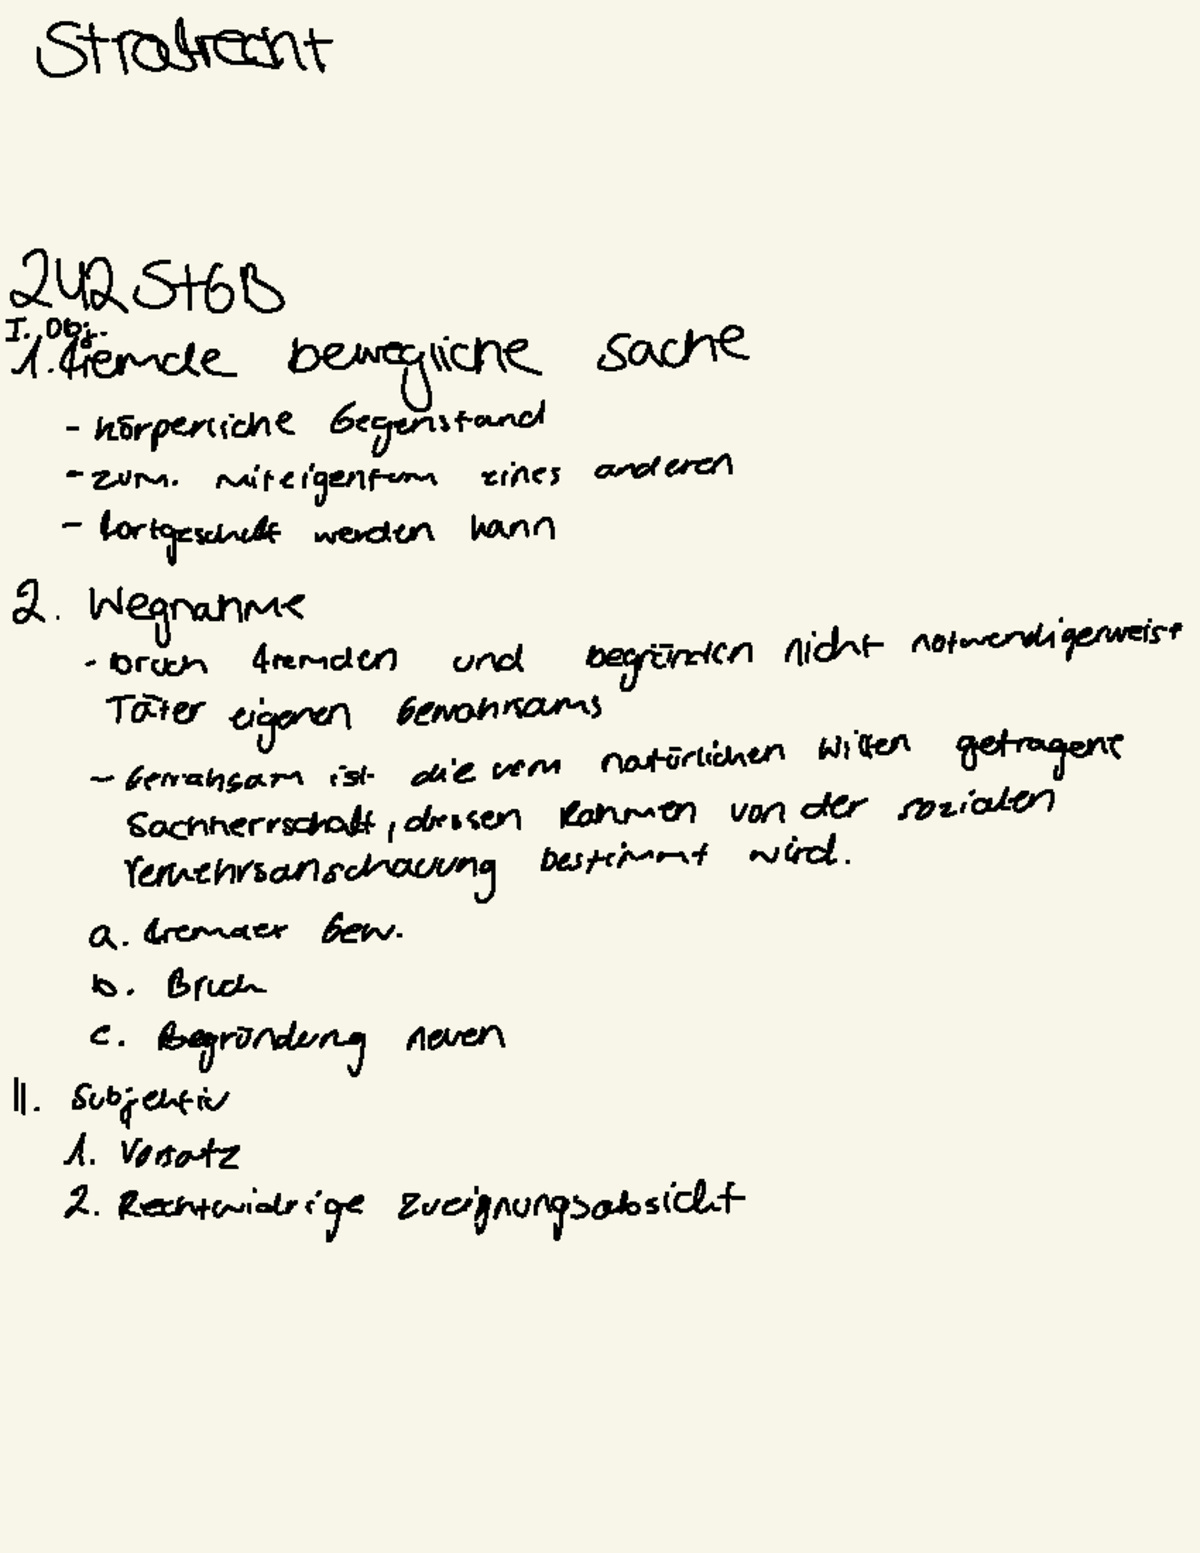 Strafrecht
242 StGB
I. Obj.
1. fremde bewegliche sache
- körperliche Gegenstand
- zum. miteigentum eines anderen
- fortgeschafft werden kann
2. Wegnahme
- bruch fremden und begründen nicht notwendigerweise
Täter eigenen Gewahrsams
- Gewahsam ist die vom natürlichen Willen getragene
Sachherrschaft, dessen Rahmen von der sozialen
Verkehrsanschauung bestimmt wird.
a. fremder Gew.
b. Bruch
c. Begründung neuen
II. Subjektiv
1. Vorsatz
2. Rechtwidrige Zueignungsabsicht